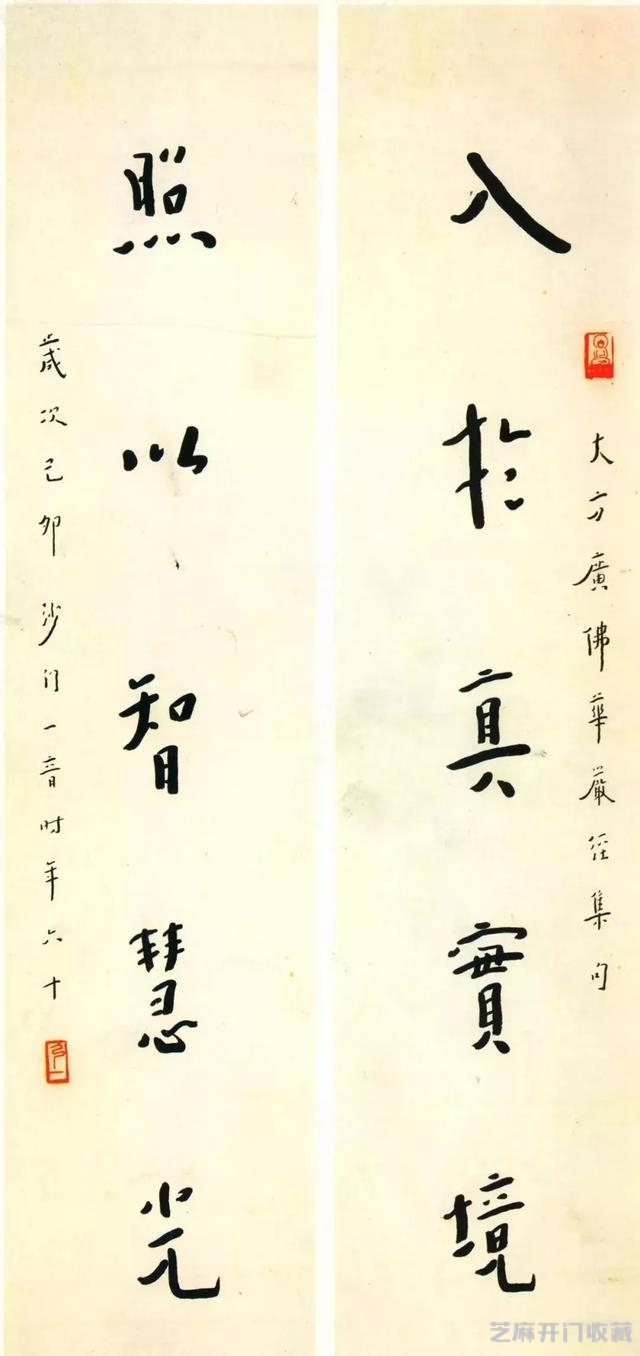 入於真實境
大方廣佛華嚴經集句
照以智慧光
歲次己卯沙門一音時年六十
芝麻开门收藏